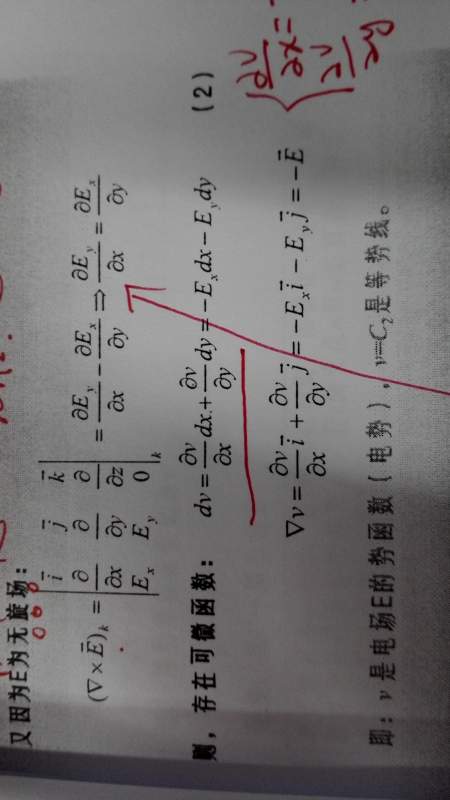 又因为E为无旋场：
(∇×E⃗)ₖ = | i⃗ j⃗ k⃗ ; ∂/∂x ∂/∂y ∂/∂z ; Eₓ E_y 0 |ₖ = ∂E_y/∂x − ∂Eₓ/∂y ⇒ ∂E_y/∂x = ∂Eₓ/∂y
则，存在可微函数： dv = ∂v/∂x dx + ∂v/∂y dy = −Eₓdx − E_y dy (2)
∇v = ∂v/∂x i⃗ + ∂v/∂y j⃗ = −Eₓ i⃗ − E_y j⃗ = −E⃗
∂v/∂x =
∂v/∂y
即：v 是电场E的势函数（电势），v=C₂是等势线。